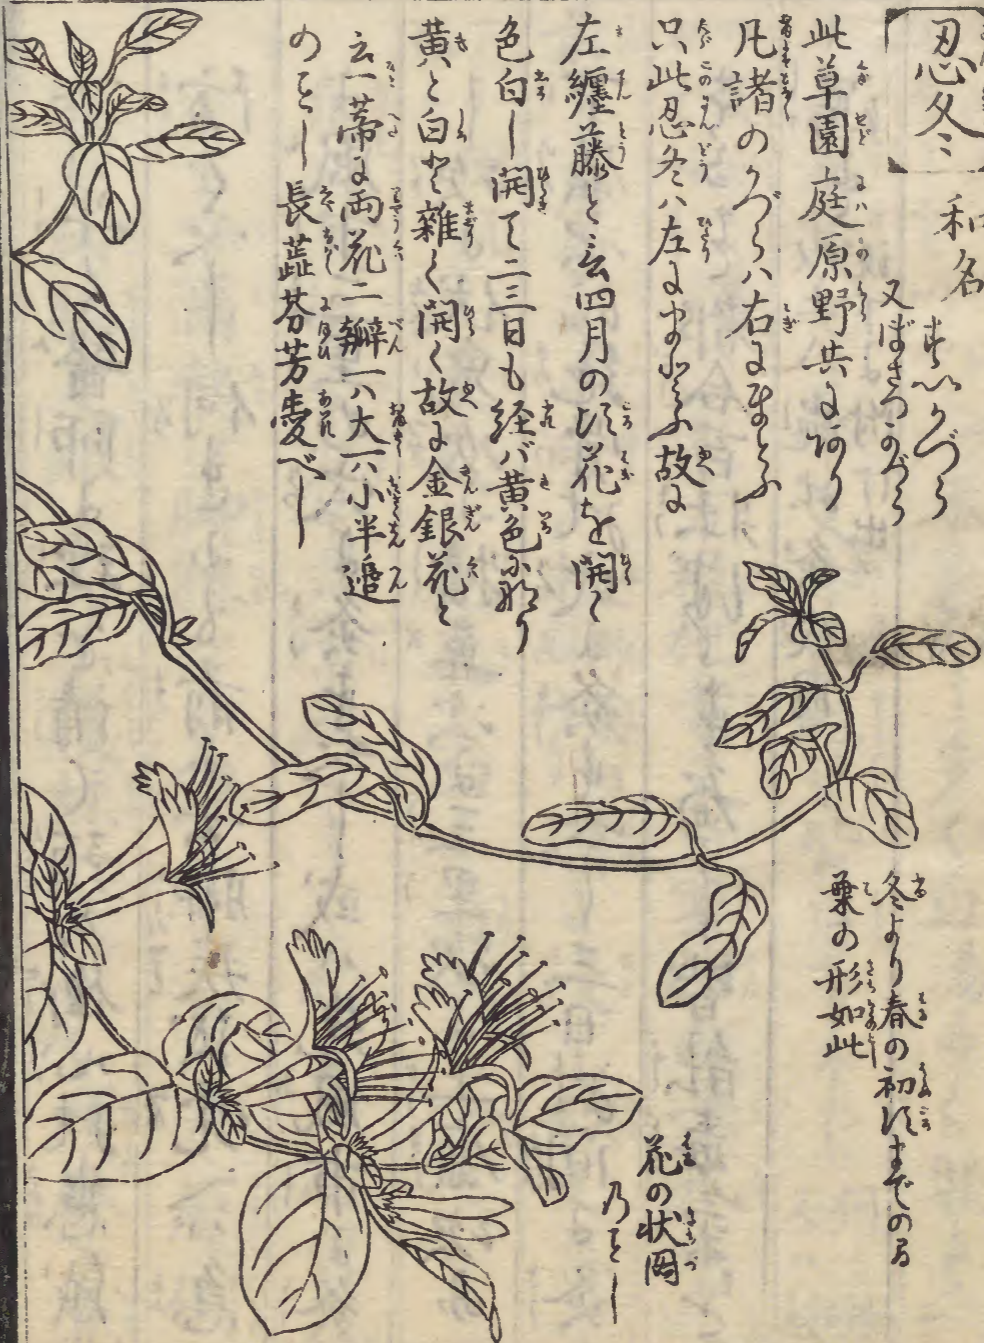 忍冬
和名 すいかづら
又ばさつかづら
此草園庭原野共に阿り
凡諸のかづらハ右にまとふ
只此忍冬ハ左にまとふ故に
左纏藤と云四月の頃花を開く
色白し開て二三日も経バ黄色に那り
黄と白と雑て開く故に金銀花と
云一蒂に両花二瓣一ハ大一ハ小半邉
のごとし長蘂芬芳愛べし
冬より春の初頃までの間
葉の形如此
花の状図
乃ごとし